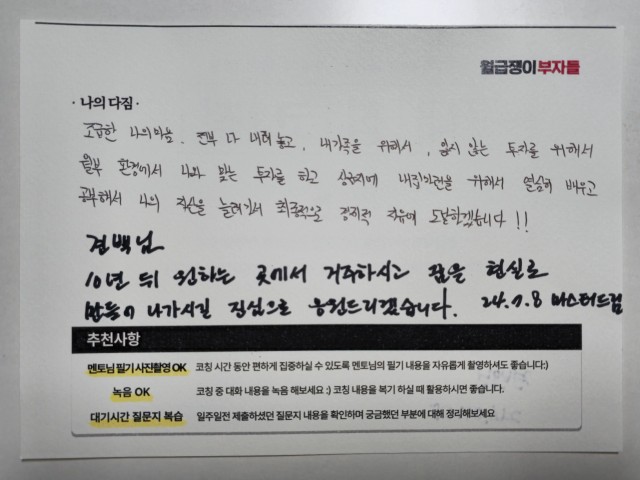 월급쟁이부자들
· 나의 다짐 ·
조급한 나의 마음. 전부 다 내려놓고, 내가족을 위해서, 잃지 않는 투자를 위해서
월부 환경에서 나와 맞는 투자를 하고 상급지에 내집마련을 위해서 열심히 배우고
공부해서 나의 자산을 늘려가서 최종적으로 경제적 자유에 도달하겠습니다!!
건백님
10년 뒤 원하는 곳에서 거주하시고 꿈을 현실로
만들어 나가시길 진심으로 응원드리겠습니다. 24.7.8 마스터드림
추천사항
멘토님 필기 사진촬영 OK 코칭 시간 동안 편하게 집중하실 수 있도록 멘토님의 필기 내용을 자유롭게 촬영하셔도 좋습니다:)
녹음 OK 코칭 중 대화 내용을 녹음 해보세요 :) 코칭 내용을 복기 하실 때 활용하시면 좋습니다.
대기시간 질문지 복습 일주일전 제출하셨던 질문지 내용을 확인하며 궁금했던 부분에 대해 정리해보세요